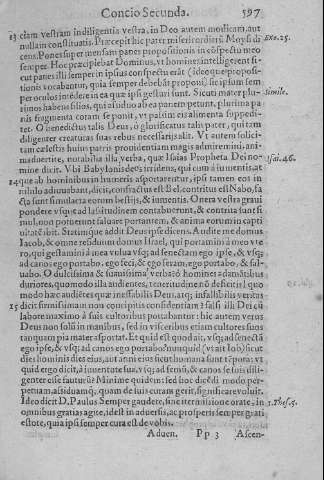 Concio Secunda. 597
13 ciam vestram indiligentia vestra, in Deo autem modicam, aut
nullam constituatis. Præcepit hic pater misericordiarū Moysi di- Exo. 25.
cens. Pones super mensam panes propositionis in cōspectu meo
semper. Hoc præcipiebat Dominus, vt homines intelligerent si-
cut panes illi semper in ipsius conspectu erāt (ideoque proposi-
tionis vocabantur, quia semper debebāt proponi) sic ipsum sem
per oculos intēdere in ea quæ ipsi gestari sunt. Sicuti mater plu- Simile.
rimos habens filios, qui assiduo ab ea panem petunt, plurima pa-
nis fragmenta coram se ponit, vt passim eis alimenta suppedi-
tet. O benedictus talis Deus, ô glorificatus talis pater, qui tam
diligenter creaturas suas rebus necessarijs alit. Vt autem solici-
tam cælestis huius patris prouidentiam magis admiremini, ani-
maduertite, notabilia illa verba, quæ Isaias Propheta Dei no- Isai. 46.
mine dicit. Vbi Babylonides irridens, qui cum à iumentis, at-
14 que ab hominibus in humeris asportarentur, ipsi tamen eos in
nihilo adiuuabant, dicit, confractus est Bel. contritus est Nabo, fa
cta sunt simulacra eorum bestijs, & iumentis. Onera vestra graui
pondere vsque ad lassitudinem contabuerunt, & contrita sunt si
mul, non potuerunt saluare portantem, & anima eorum in capti
uitatē ibit. Statimque addit Deus ipse dicens. Audite me domus
Iacob, & omne residuum domus Israel, qui portamini à meo vte
ro, qui gestamini à mea vulua vsq; ad senectam ego ipse, & vsq;
ad canos ego portabo. ego feci, & ego feram, ego portabo, & sal-
uabo. O dulcissima & suauissima verba! ô homines adamātibus
duriores, quomodo illa audientes, teneritudine nō deficitis! quo
modo hæc audiētes quæ infallibilis Deus, atq; infallibilis veritas
15 dicit firmissimam in eo non concipitis confidentiam? falsi illi Dei cū
labore maximo à suis cultoribus portabantur: hic autem verus
Deus non solū in manibus, sed in visceribus etiam cultores suos
tanquam pia mater asportat. Et quid est quod ait, vsq; ad senectā
ego ipse, & vsq; ad canos ego portabo? nunquid (vt ait Iob) sicut
dies hominis dies eius, aut anni eius sicut humana sunt tēpora: vt
quid ergo dicit, à iuuentute sua, vsq; ad senū, & canos se suis dili-
genter eisse futurū? Minime quidem: sed hoc dicēdi modo per-
petuam, assiduamq́; quam de suis curam gerit, significare voluit.
Ideo dicit D. Paulus Semper gaudete, sine itermissione orate, in 1. Thes. 5.
omnibus gratias agite, id est in aduersis, ac prosperis semper grati
estote, quia ipsi semper cura est de vobis.
Aduen. Pp 3 Ascen-